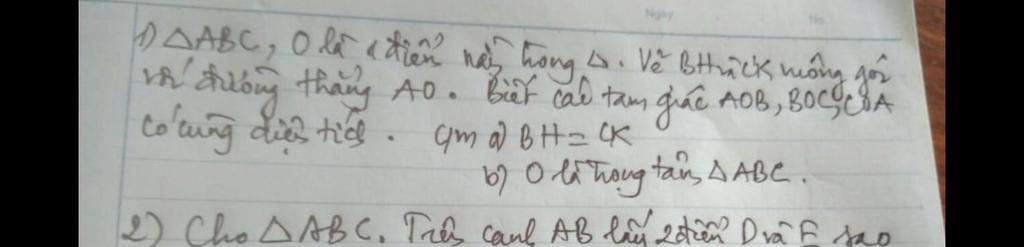 1) △ABC, O là 1 điểm nằm trong △. Vẽ BH và CK vuông góc
với đường thẳng AO. Biết các tam giác AOB, BOC, COA
có cùng diện tích. Cm a) BH = CK
b) O là trọng tâm △ABC.
2) Cho △ABC. Trên cạnh AB lấy 2 điểm D và E sao